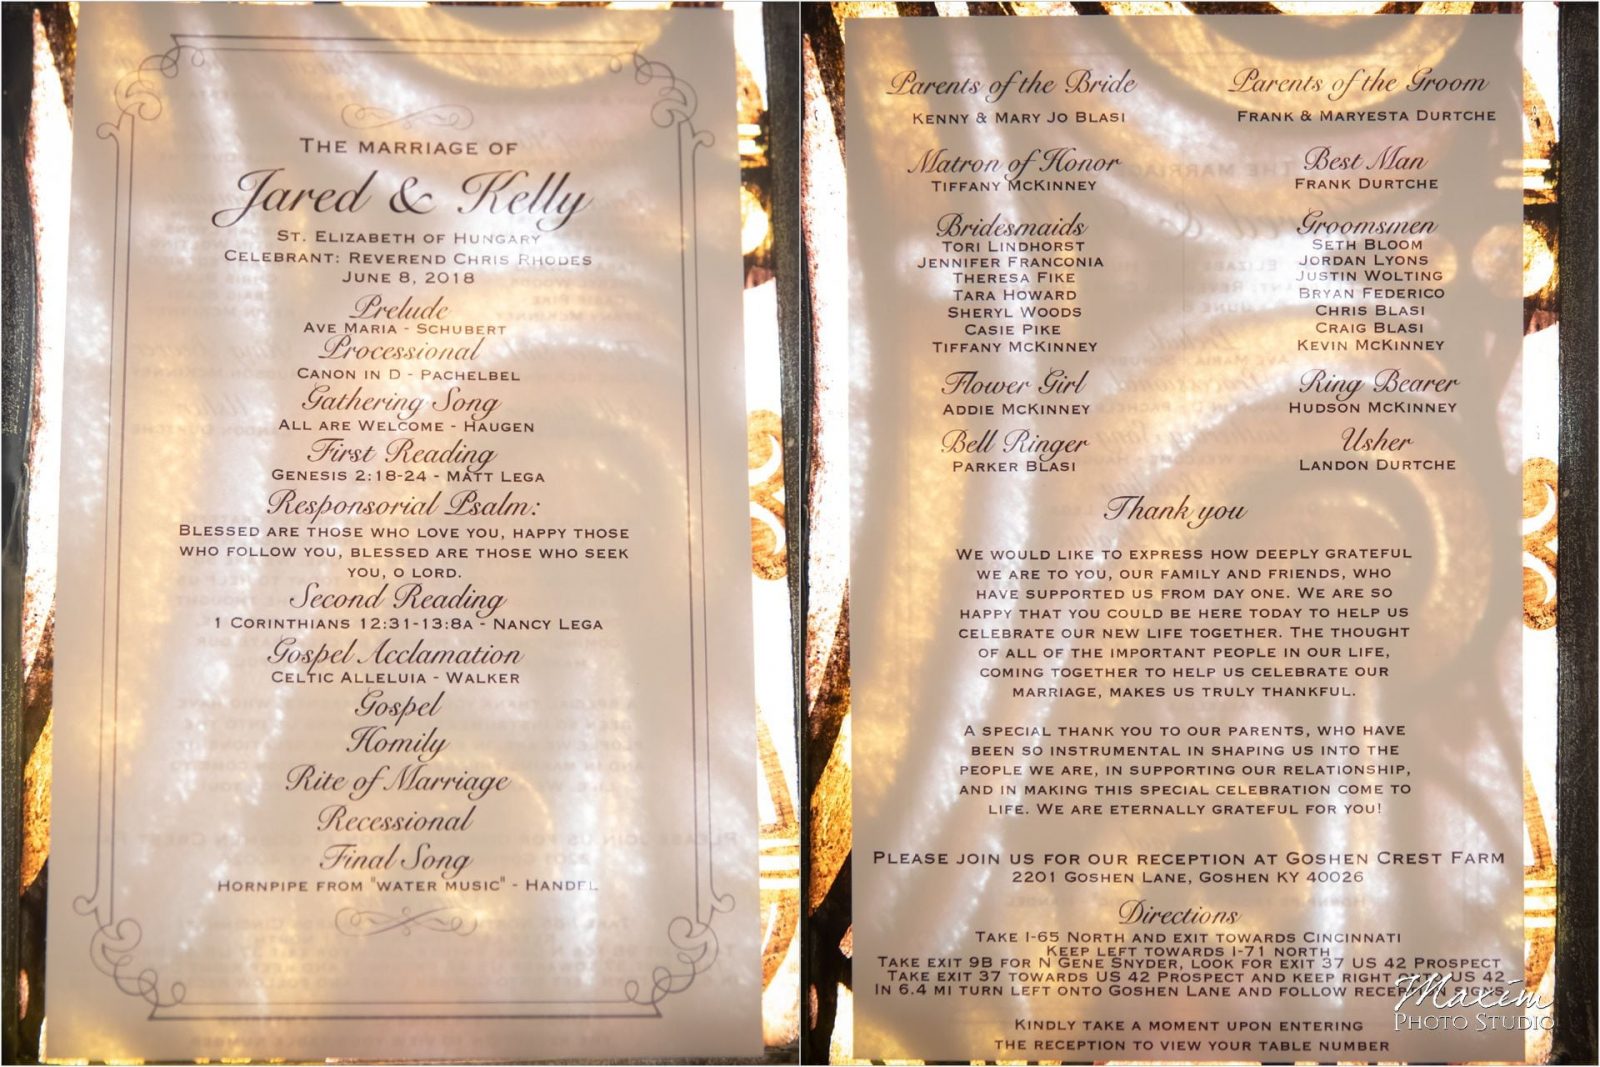 The marriage of
Jared & Kelly
St. Elizabeth of Hungary
Celebrant: Reverend Chris Rhodes
June 8, 2018
Prelude
Ave Maria - Schubert
Processional
Canon in D - Pachelbel
Gathering Song
All are Welcome - Haugen
First Reading
Genesis 2:18-24 - Matt Lega
Responsorial Psalm:
Blessed are those who love you, happy those
who follow you, blessed are those who seek
you, O Lord.
Second Reading
1 Corinthians 12:31-13:8a - Nancy Lega
Gospel Acclamation
Celtic Alleluia - Walker
Gospel
Homily
Rite of Marriage
Recessional
Final Song
Hornpipe from "water music" - Handel
Parents of the Bride
Kenny & Mary Jo Blasi
Matron of Honor
Tiffany McKinney
Bridesmaids
Tori Lindhorst
Jennifer Franconia
Theresa Fike
Tara Howard
Sheryl Woods
Casie Pike
Tiffany McKinney
Flower Girl
Addie McKinney
Bell Ringer
Parker Blasi
Parents of the Groom
Frank & Maryesta Durtche
Best Man
Frank Durtche
Groomsmen
Seth Bloom
Jordan Lyons
Justin Wolting
Bryan Federico
Chris Blasi
Craig Blasi
Kevin McKinney
Ring Bearer
Hudson McKinney
Usher
Landon Durtche
Thank you
We would like to express how deeply grateful
we are to you, our family and friends, who
have supported us from day one. We are so
happy that you could be here today to help us
celebrate our new life together. The thought
of all of the important people in our life,
coming together to help us celebrate our
marriage, makes us truly thankful.
A special thank you to our parents, who have
been so instrumental in shaping us into the
people we are, in supporting our relationship,
and in making this special celebration come to
life. We are eternally grateful for you!
Please join us for our reception at Goshen Crest Farm
2201 Goshen Lane, Goshen KY 40026
Directions
Take I-65 North and exit towards Cincinnati
Keep left towards I-71 north
Take exit 9B for N Gene Snyder, look for exit 37 US 42 Prospect
Take exit 37 towards US 42 Prospect and keep right onto US 42
In 6.4 mi turn left onto Goshen Lane and follow reception signs
Kindly take a moment upon entering
the reception to view your table number
Maxim
Photo Studio